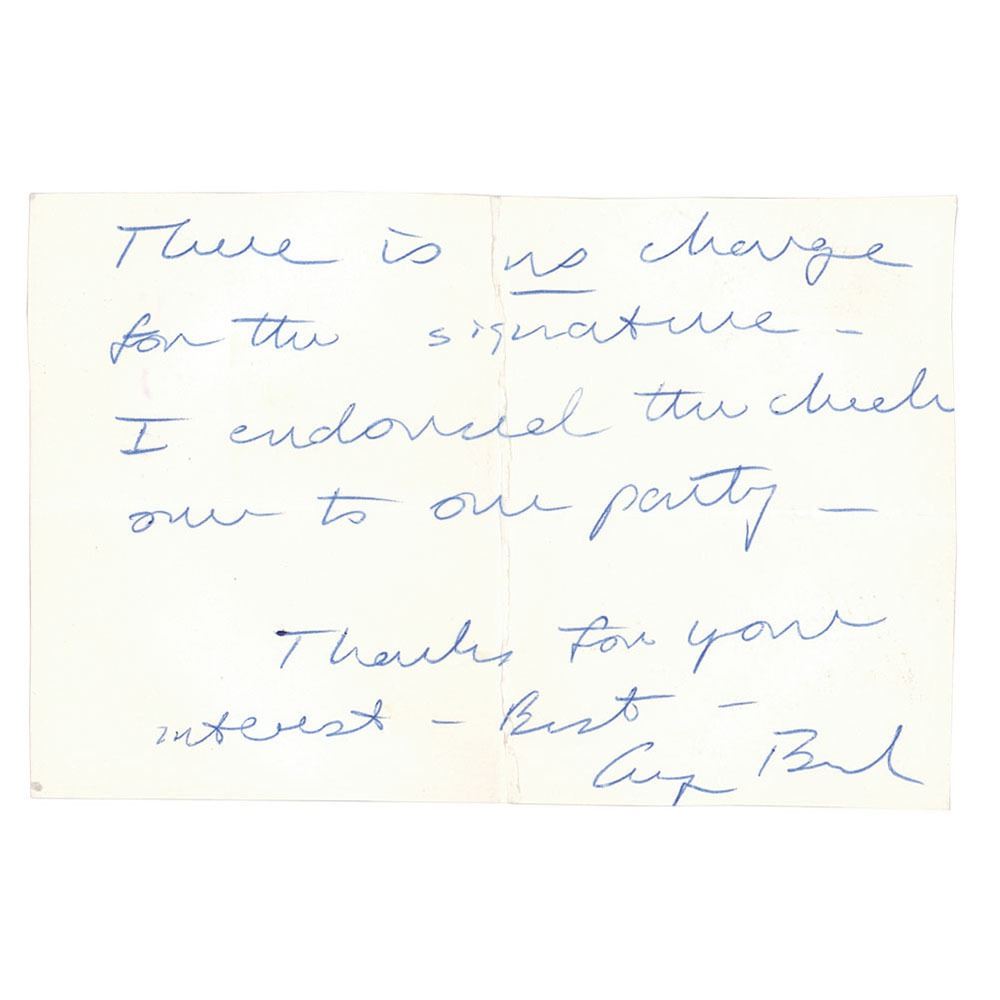 There is no charge
for the signature -
I endorsed the check
over to our party -
Thanks for your
interest - Best -
Bush